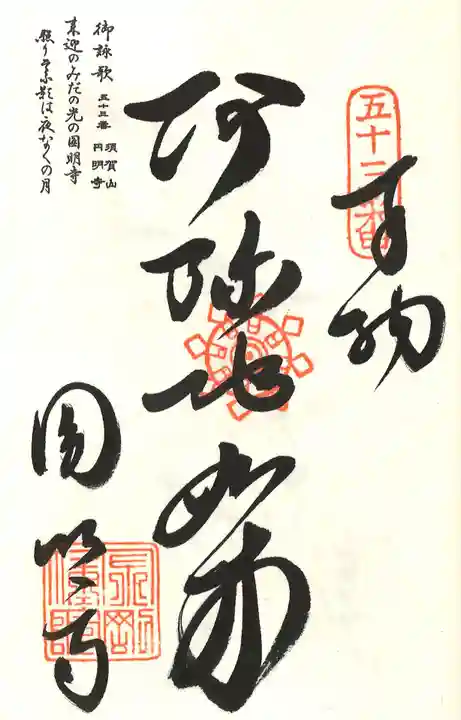 五十三番
奉納
阿弥陀如来
圓明寺
御詠歌 五十三番 須賀山 円明寺
来迎のみだの光の圓明寺
照りそふ影は夜な夜なの月